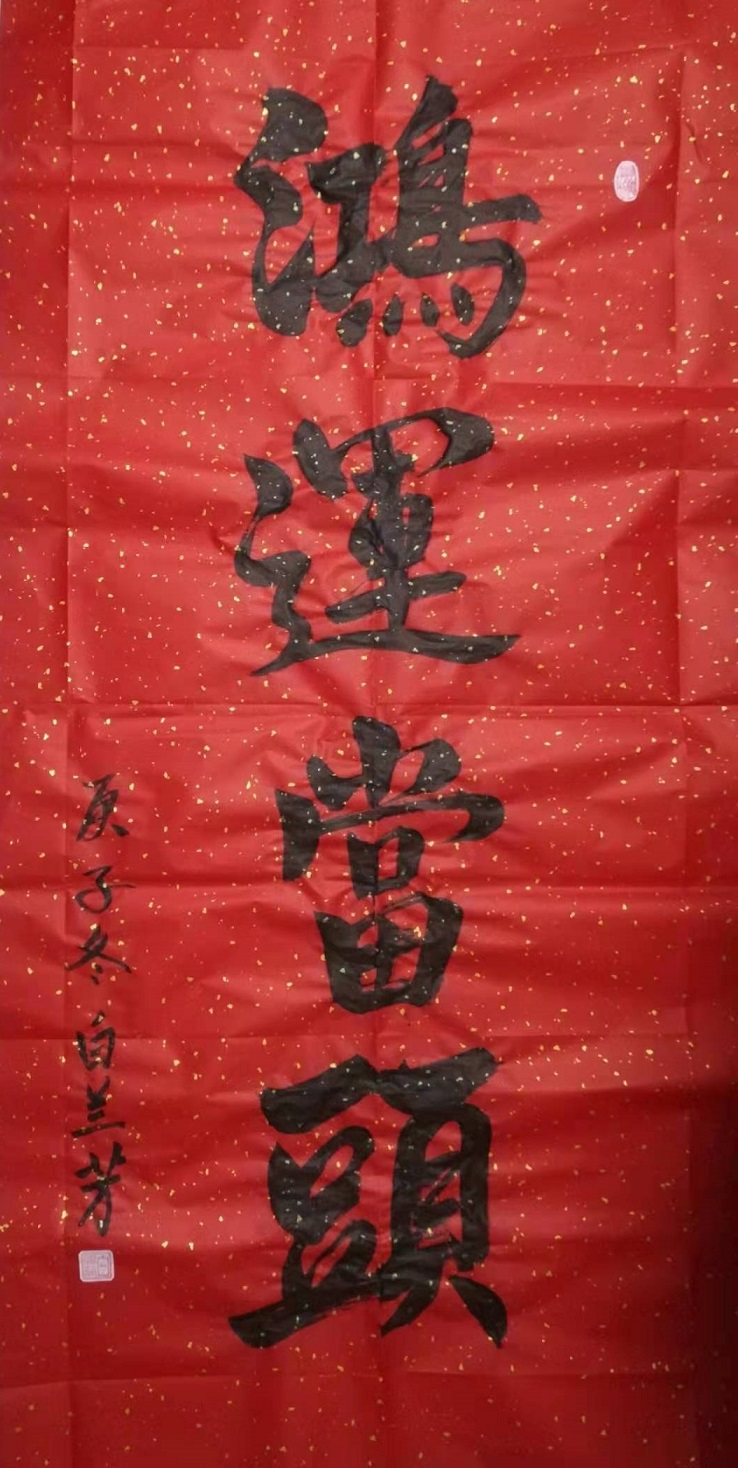 鴻運當頭
庚子冬 白兰芳